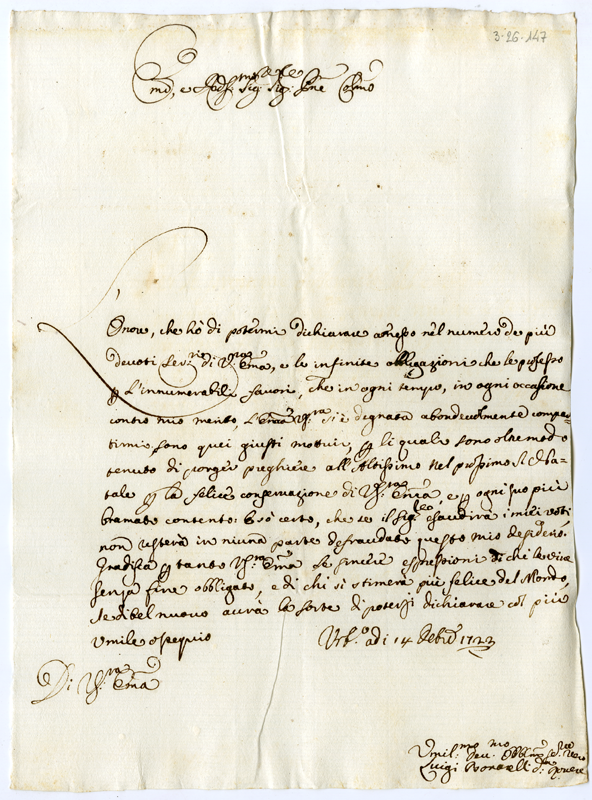 3-26-147
Emo, e Rdss: Sig: Sig: Pne Colmo
L'onore, che hò di potermi dichiarare annesso nel numero de più
devoti Ser.ri di V.ra Ema, e le infinite obbligazioni che le professo
p L'innumerabili favori, che in ogni tempo, in ogni occasione
contro mio merito L'Ema V.ra si è degnata abondevolmente compar-
timi, sono quei giusti motivi, p li quali sono oltremodo
tenuto di porger preghiere all'Altissimo nel prossimo S. Na-
tale p la felice conservazione di V.ra Ema, e p ogni suo più
bramato contento: E sò certo, che se il Sig.re esaudirà i miei voti
non resterà in niuna parte defraudato questo mio desiderio.
Gradisca p tanto V.ra Ema le sincere espressioni di chi le vive
senza fine obbligato, e di chi si stimerà più felice del Mondo,
se di bel nuovo aurà la sorte di potersi dichiarare col più
umile ossequio
Urb.o adi 14 Xebre 1723
Di V.ra Ema
Umil.mo Dev. Obblmo Se.re vero
Luigi Bonarelli d. Rovere